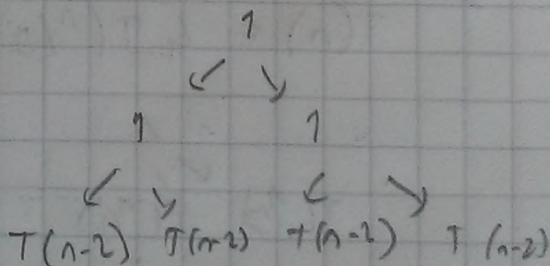 1
1 1
T(n-2) T(n-2) T(n-2) T(n-2)